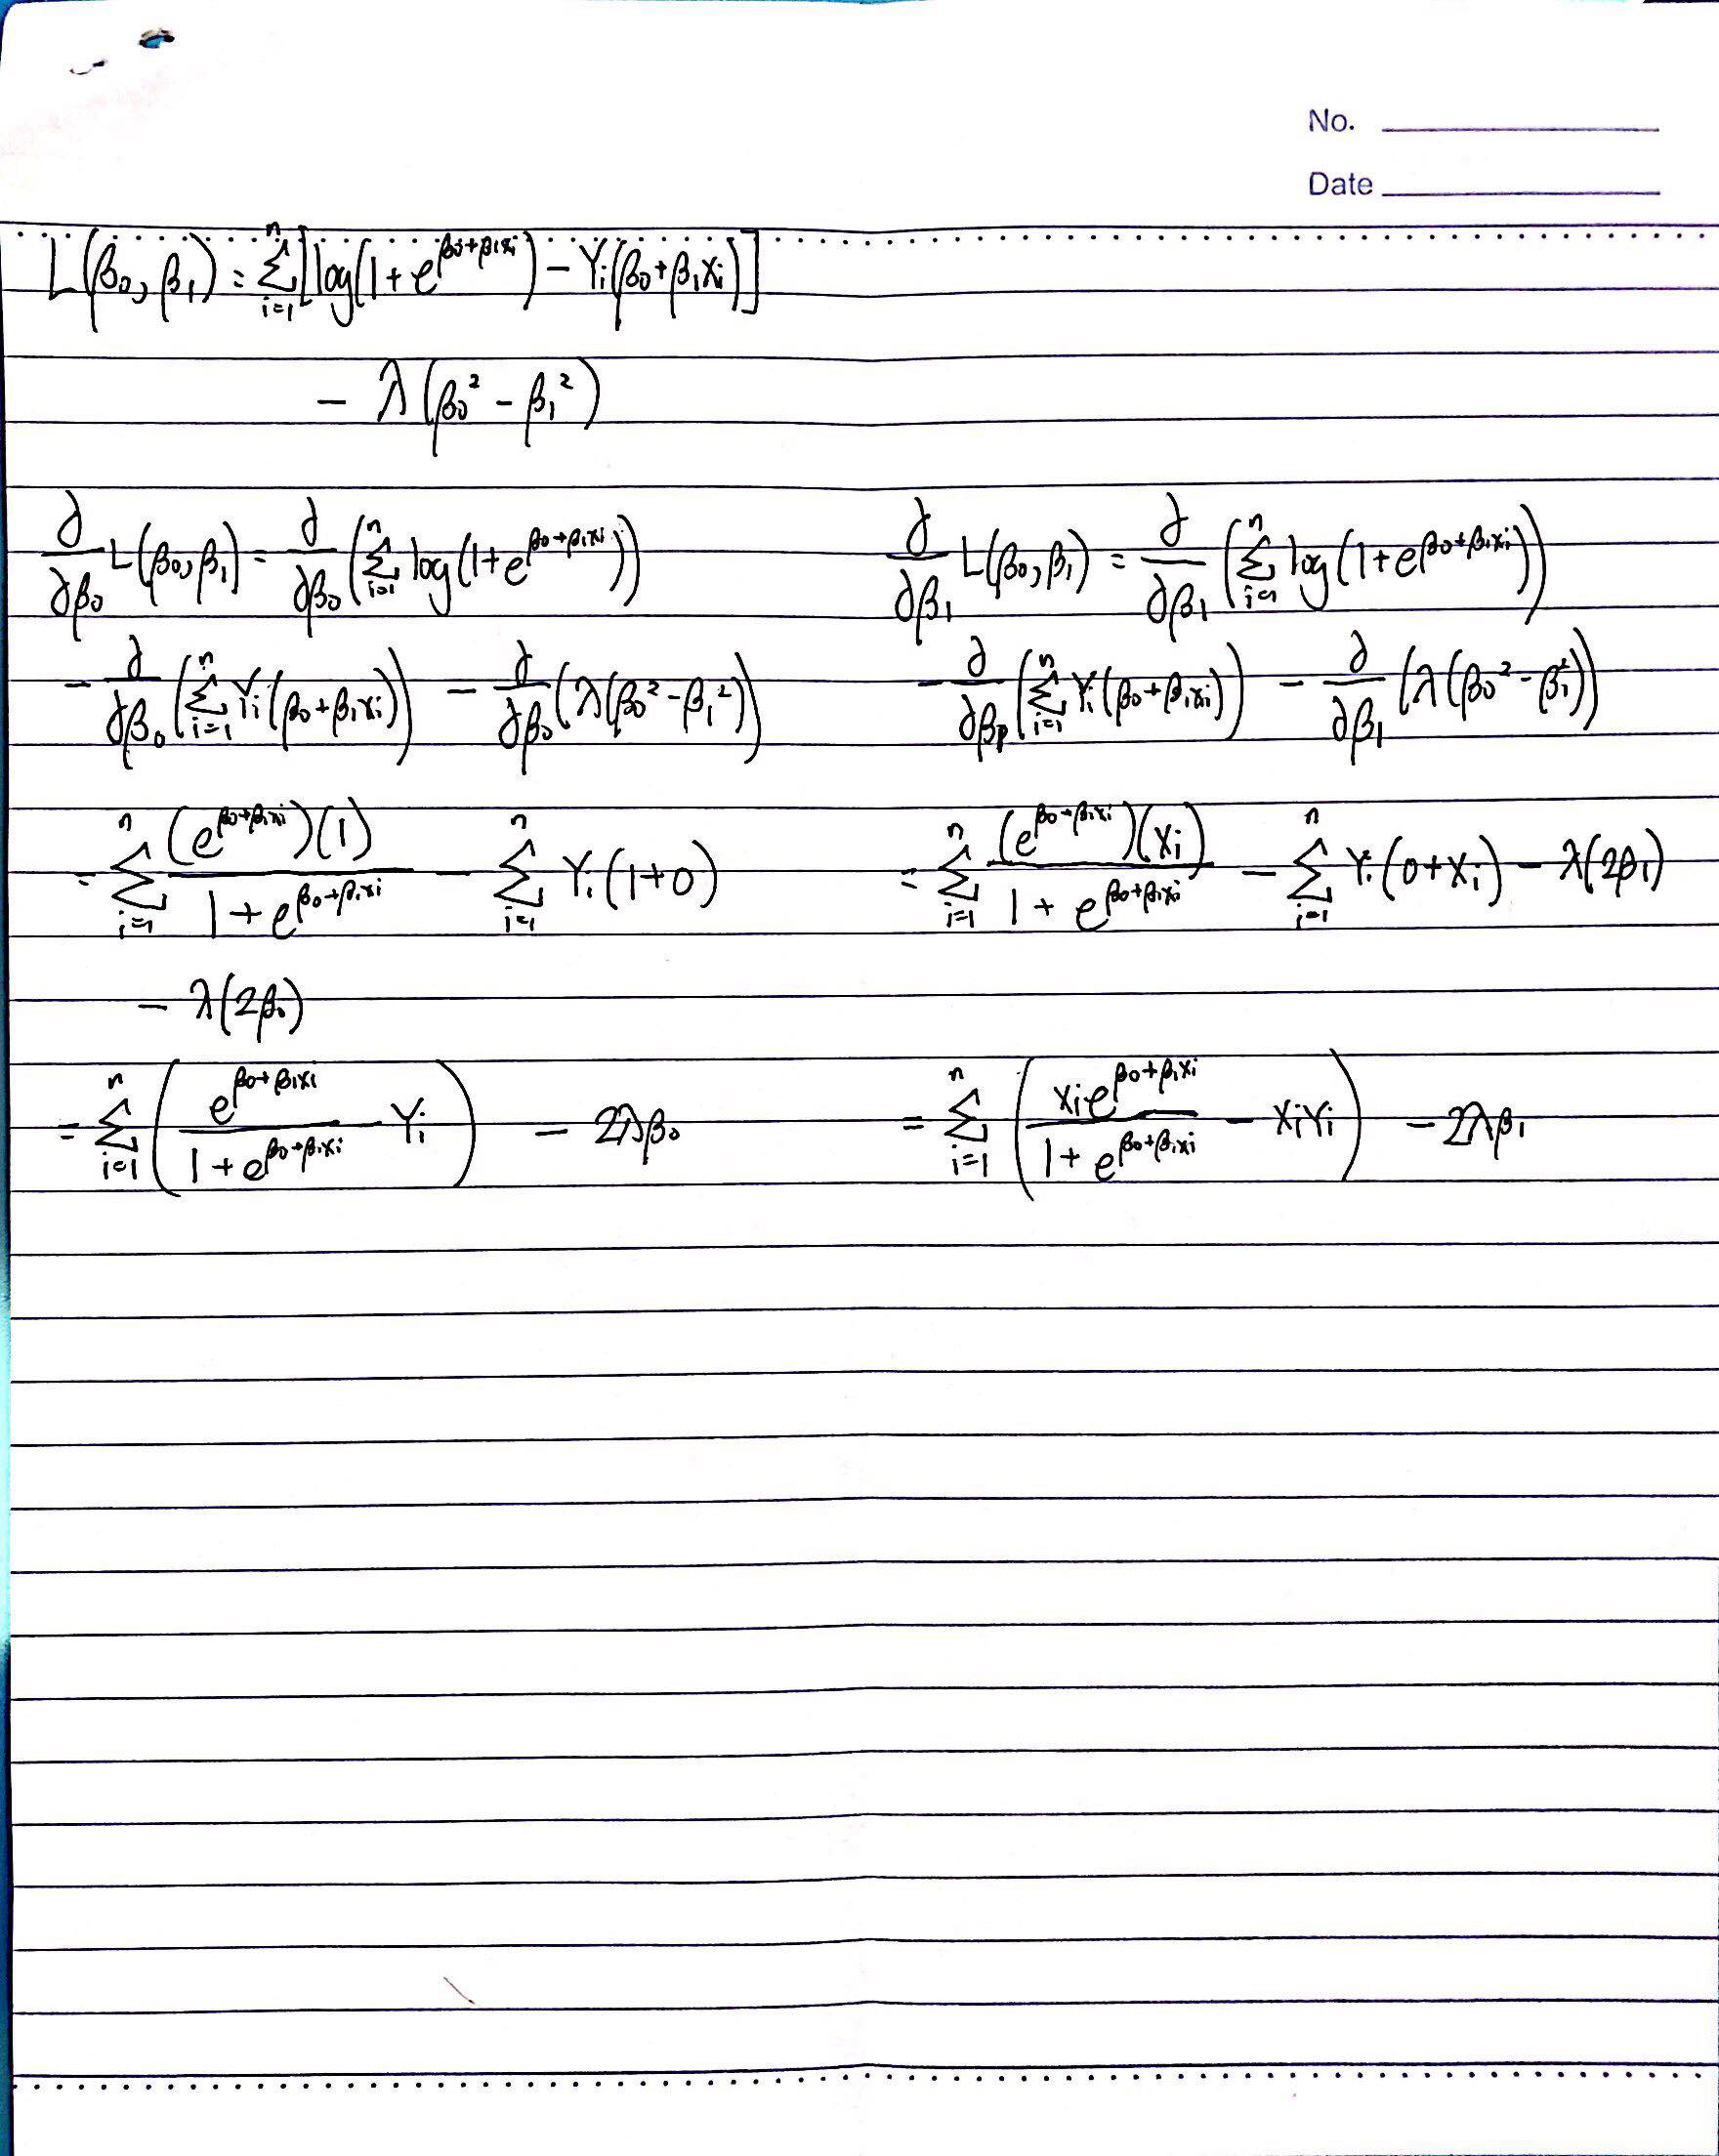 No.
Date
L(β₀, β₁) = Σᵢ₌₁ⁿ [log(1 + e^(β₀+β₁xᵢ)) − Yᵢ(β₀+β₁xᵢ)]
− λ(β₀² − β₁²)
∂/∂β₀ L(β₀, β₁) = ∂/∂β₀ (Σᵢ₌₁ⁿ log(1+e^(β₀+β₁xᵢ)))
− ∂/∂β₀ (Σᵢ₌₁ⁿ Yᵢ(β₀+β₁xᵢ)) − ∂/∂β₀ (λ(β₀²−β₁²))
= Σᵢ₌₁ⁿ (e^(β₀+β₁xᵢ))(1) / (1 + e^(β₀+β₁xᵢ)) − Σᵢ₌₁ⁿ Yᵢ(1+0)
− λ(2β₀)
= Σᵢ₌₁ⁿ (e^(β₀+β₁xᵢ) / (1 + e^(β₀+β₁xᵢ)) − Yᵢ) − 2λβ₀
∂/∂β₁ L(β₀, β₁) = ∂/∂β₁ (Σᵢ₌₁ⁿ log(1+e^(β₀+β₁xᵢ)))
− ∂/∂β₁ (Σᵢ₌₁ⁿ Yᵢ(β₀+β₁xᵢ)) − ∂/∂β₁ (λ(β₀²−β₁²))
= Σᵢ₌₁ⁿ (e^(β₀+β₁xᵢ))(xᵢ) / (1 + e^(β₀+β₁xᵢ)) − Σᵢ₌₁ⁿ Yᵢ(0+xᵢ) − λ(2β₁)
= Σᵢ₌₁ⁿ (xᵢe^(β₀+β₁xᵢ) / (1 + e^(β₀+β₁xᵢ)) − xᵢYᵢ) − 2λβ₁